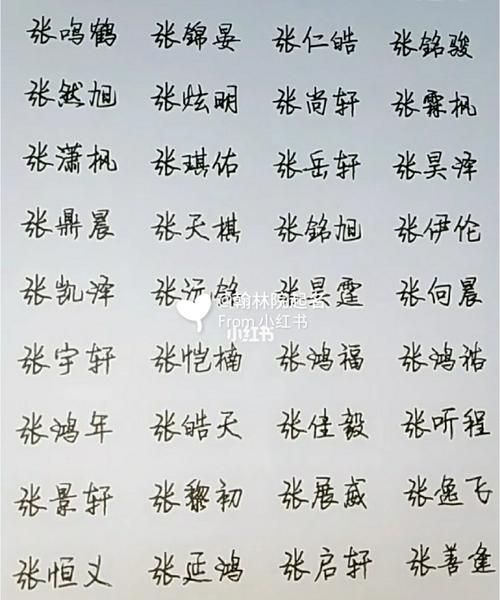 张鸣鹤 张锦晏 张仁皓 张铭骏
张然旭 张炫明 张尚轩 张霖枫
张潇枫 张琪佑 张岳轩 张昊泽
张鼎晨 张天棋 张铭旭 张伊伦
张凯泽 张沅铭 张昊霆 张向晨
@翰林院起名
From 小红书
小红书
张宇轩 张恺楠 张鸿福 张鸿祐
张鸿年 张皓天 张佳毅 张听程
张景轩 张黎初 张展威 张逸飞
张恒义 张延鸿 张启轩 张善逢